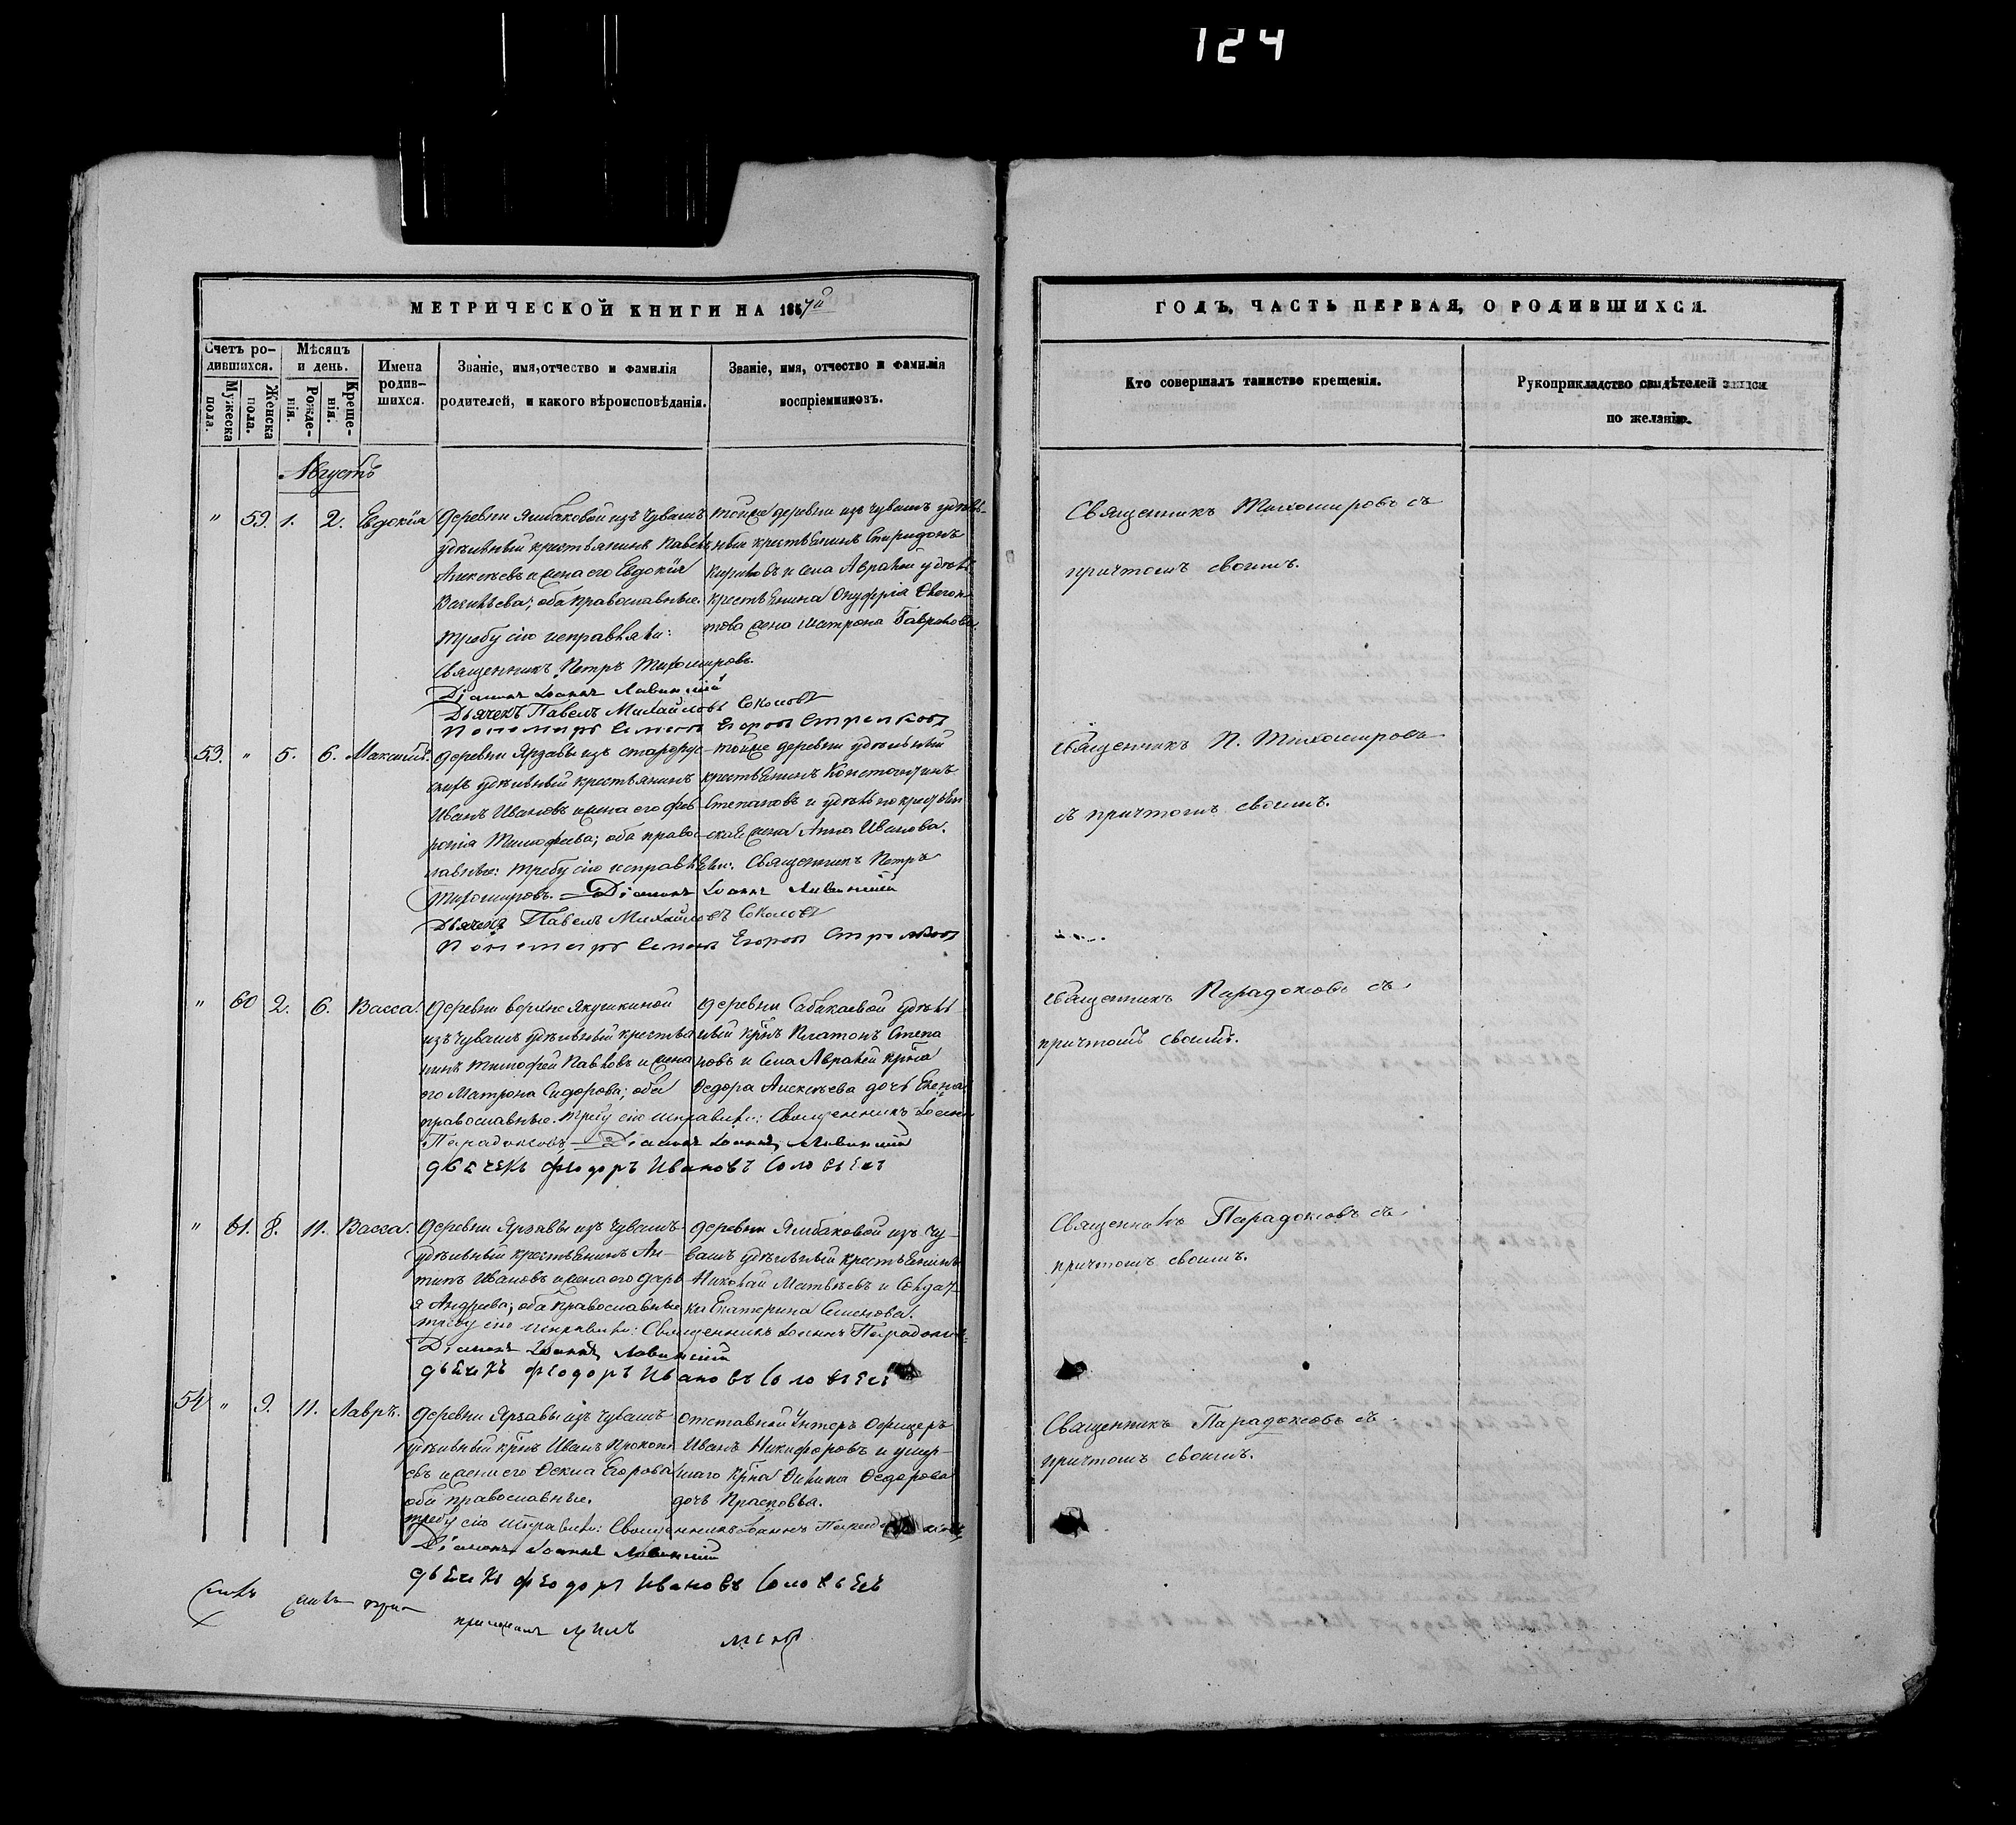 124
МЕТРИЧЕСКОЙ КНИГИ НА 1857й
ГОДЪ, ЧАСТЬ ПЕРВАЯ, О РОДИВШИХСЯ.
Счетъ родившихся.
Мужеска пола.
Женска пола.
Мѣсяцъ и день.
Рожденія.
Крещенія.
Имена родившихся.
Званіе, имя, отчество и фамилія
родителей, и какого вѣроисповѣданія.
Званіе, имя, отчество и фамилія
воспріемниковъ.
Кто совершалъ таинство крещенія.
Рукоприкладство свидѣтелей записи
по желанію.
Августъ
" 59. 1. 2. Евдокія
Деревни Ямбаковой изъ чувашъ
удѣльный крестьянинъ Павелъ
Алексѣевъ и жена его Евдокія
Васильева; оба православные.
тойже деревни изъ чувашъ удѣль-
ный крестьянинъ Спиридонъ
Кириловъ и села Авралей удѣл.
крестьянина Онуфрія
жена Матрона Гаврилова.
требу сію исправляли:
Священникъ Петръ Тихомировъ.
Діаконъ Іоаннъ
Дьячекъ Павелъ Михайловъ Соколовъ
Пономарь Семенъ Егоровъ Стрелковъ
Священникъ Тихомировъ съ
причтомъ своимъ.
53. " 5. 6. Максимъ.
деревни Ярзавы изъ старорус-
скихъ удѣльный крестьянинъ
Иванъ Ивановъ и жена его Фев-
ронія Тимофеева; оба правос-
лавные:
тойже деревни удѣльный
крестьянинъ Константинъ
Степановъ и удѣльно крестьян
ская жена Анна Иванова.
требу сію исправляли: Священникъ Петръ
Тихомировъ. Діаконъ Іоаннъ
Дьячекъ Павелъ Михайловъ Соколовъ
Пономарь Семенъ Егоровъ Стрелковъ
Священникъ П. Тихомировъ
съ причтомъ своимъ.
" 60 2. 6. Васса.
Деревни верхне Якушкиной
изъ чувашъ удѣльный крестья
нинъ Тимофей Павловъ и жена
его Матрона Сидорова; оба
православные.
деревни Сабакаевой удѣль
ный крнъ Платонъ Степа
новъ и села Авралей крна
Федора Алексѣева дочь Елена
требу сію исправляли: Священникъ Іоаннъ
Парадоксовъ Діаконъ Іоаннъ
дьячекъ Феодоръ Ивановъ Соловьевъ
Священникъ Парадоксовъ съ
причтомъ своимъ.
" 61. 8. 11. Васса.
Деревни Ярзавы изъ чувашъ
удѣльный крестьянинъ Ан-
типъ Ивановъ и жена его Дарь
я Андреева; оба православные
деревни Ямбаковой изъ чу-
вашъ удѣльный крестьянинъ
Николай Матвѣевъ и Солдат-
ка Екатерина Семенова.
требу сію исправляли: Священникъ Іоаннъ Парадоксовъ
Діаконъ Іоаннъ
дьячекъ Феодоръ Ивановъ Соловьевъ
Священникъ Парадоксовъ съ
причтомъ своимъ.
54 " 9. 11. Лавръ.
Деревни Ярзавы изъ чувашъ
удѣльный крнъ Иванъ Прокопь
евъ и жена его Фекла Егорова
оба православные.
отставной Унтеръ Офицеръ
Иванъ Никифоровъ и умер-
шаго крна Филипа Федорова
дочь Прасковья.
требу сію исправляли: Священникъ Іоаннъ
Діаконъ Іоаннъ
дьячекъ Феодоръ Ивановъ Соловьевъ
Священникъ Парадоксовъ съ
причтомъ своимъ.